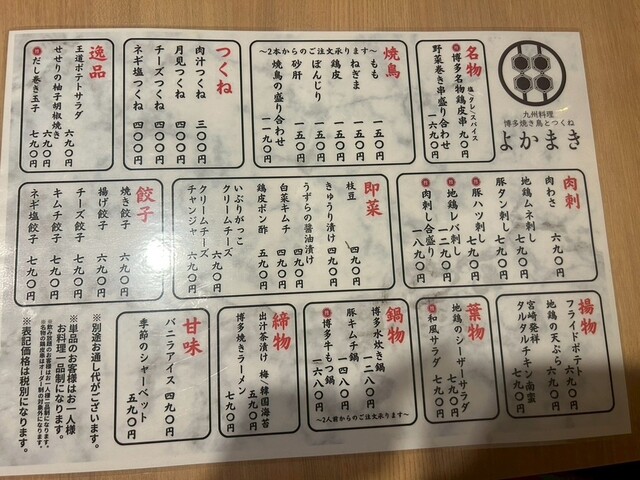 九州料理
博多焼き鳥とつくね
よかまき
名物
博多名物鶏皮串 九〇円
塩/タレ/スパイス
野菜巻き串盛り合わせ
一六九〇円
焼鳥
～2本からのご注文承ります～
もも 一五〇円
ねぎま 一五〇円
鶏皮 一五〇円
ぼんじり 一五〇円
砂肝 一五〇円
焼鳥の盛り合わせ
一一九〇円
つくね
肉汁つくね 三〇〇円
月見つくね 四〇〇円
チーズつくね 四〇〇円
ネギ塩つくね 四〇〇円
逸品
王道ポテトサラダ
六九〇円
せせりの柚子胡椒焼き
六九〇円
だし巻き玉子 七九〇円
肉刺
肉わさ 六九〇円
地鶏ムネ刺し 七九〇円
豚タン刺し 七九〇円
豚ハツ刺し 七九〇円
地鶏レバ刺し 一二九〇円
肉刺し合盛り 一八九〇円
即菜
枝豆 四九〇円
きゅうり漬け 四九〇円
うずらの醤油漬け
四九〇円
白菜キムチ 四九〇円
鶏皮ポン酢 五九〇円
いぶりがっこ
クリームチーズ
六九〇円
クリームチーズ
チャンジャ 六九〇円
餃子
焼き餃子 六九〇円
揚げ餃子 六九〇円
チーズ餃子 七九〇円
キムチ餃子 七九〇円
ネギ塩餃子 七九〇円
揚物
フライドポテト
六九〇円
地鶏の天ぷら 七九〇円
宮崎発祥
タルタルチキン南蛮
七九〇円
葉物
地鶏のシーザーサラダ
七九〇円
和風サラダ 七九〇円
鍋物
博多水炊き鍋
一二八〇円
豚キムチ鍋
一四八〇円
博多牛もつ鍋
一六八〇円
～2人前からのご注文承ります～
締物
出汁茶漬け 梅/韓国海苔
五九〇円
博多焼きラーメン
七九〇円
甘味
バニラアイス 四九〇円
季節のシャーベット
五九〇円
※別途お通し代がございます。
※単品のお客様はお一人様
お料理一品制になります。
※飲み放題のお客様はお一人様二品制になります。
※表記価格は税別になります。